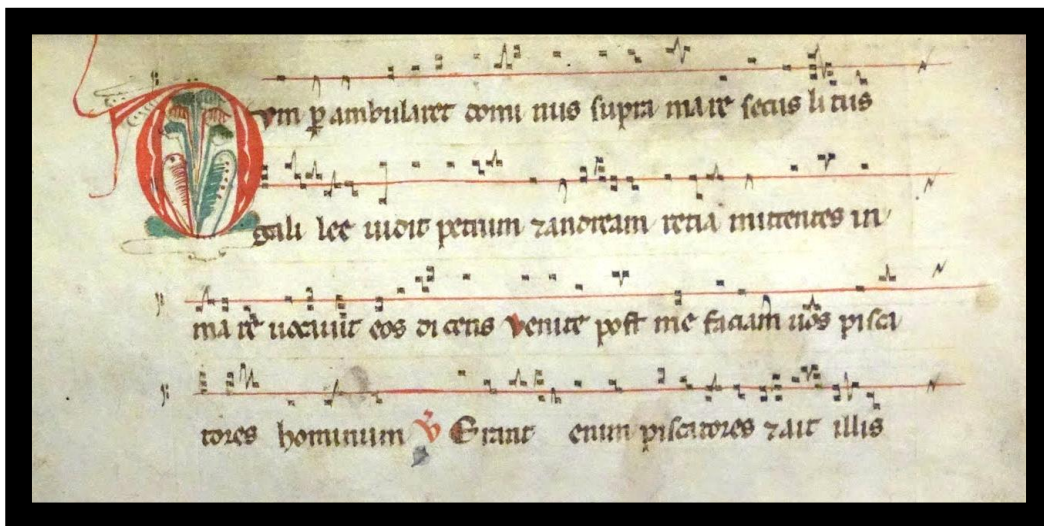 Dum p̲ambularet domi nus supra mare secus li tus
gali lee uidit petrum ⁊andream retia mittentes in
ma re uocauit eos di cens venite post me faciam uos pisca
tores hominum ℣ Erant enim piscatores ⁊ait illis